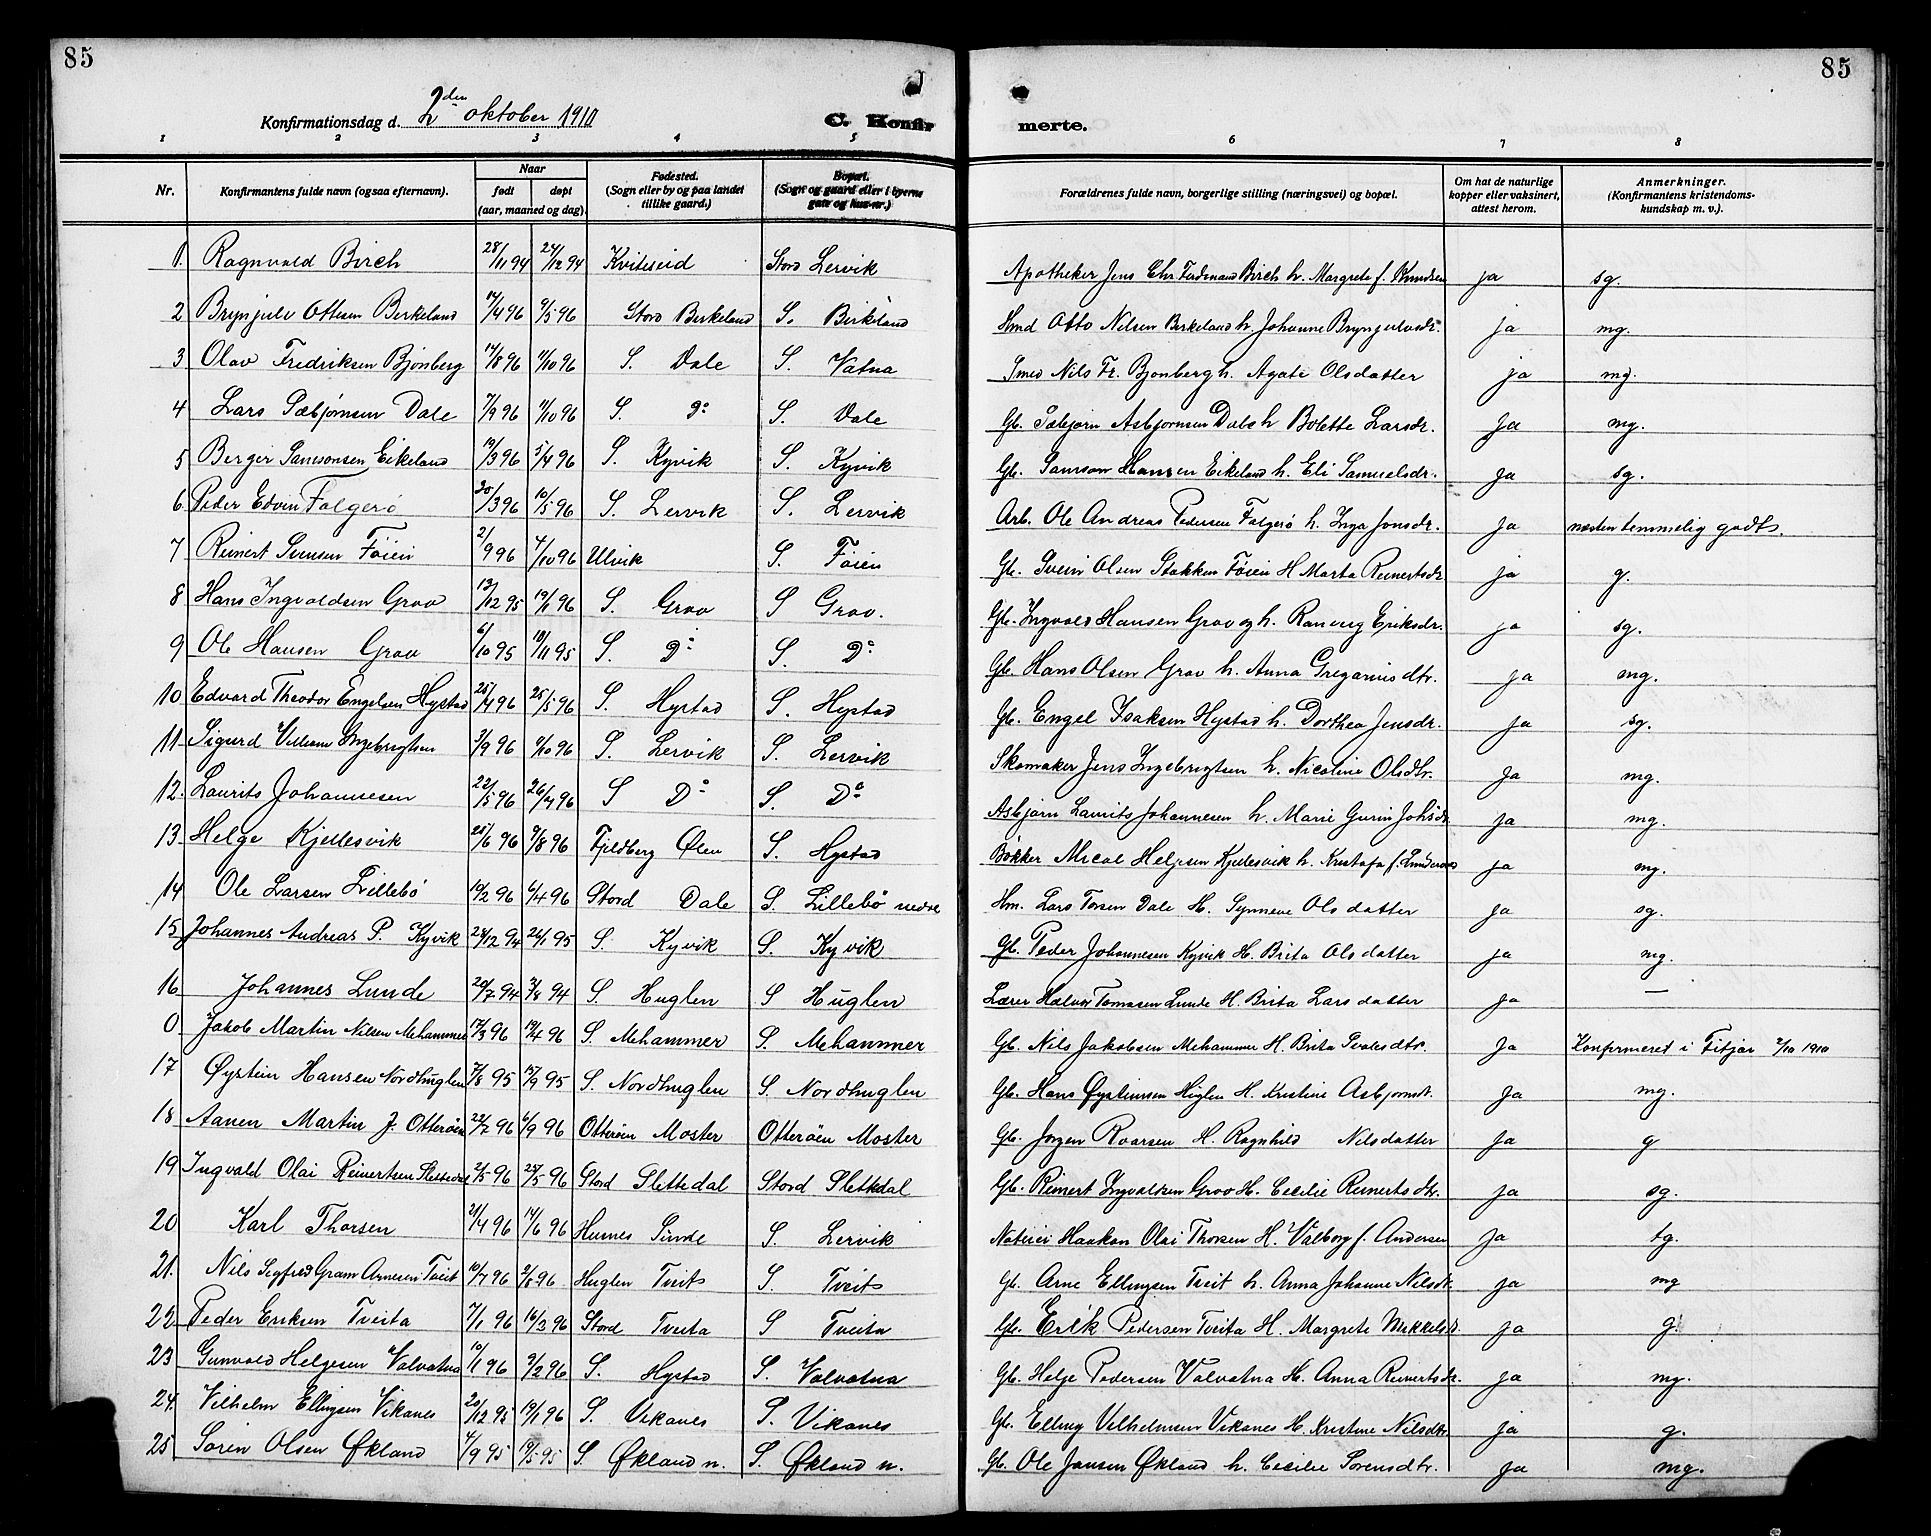 85
85
Konfirmationsdag d. 2den oktober 1910
C. Konfirmerte.
1 2 3 4 5 6 7 8
Nr. Konfirmantens fulde navn (ogsaa efternavn). Naar født døpt (aar, maaned og dag). Fødested. (Sogn eller by og paa landet tillike gaard.) Bopæl. (Sogn og gaard eller i byerne gate og hus-nr.) Forældrenes fulde navn, borgerlige stilling (næringsvei) og bopæl. Om hat de naturlige kopper eller vaksinert, attest herom. Anmerkninger. (Konfirmantens kristendoms-kundskap m. v.).
1. Ragnvald Birch 28/11 94 24/12 94 Kviteseid Stord Lervik Apotheker Jens Chr. Ferdinand Birch h. Margrete f. Knudsen ja sg.
2 Brynjulv Ottesen Berkeland 17/4 96 9/5 96 Stord Berkeland S. Birkeland Smd Otto Nilsen Berkeland h. Johanne Brynjulvsdr. ja mg.
3 Olav Fredriksen Bjönberg 14/8 96 11/10 96 S. Dale S. Vatna Smed Nils Fr. Bjonberg h. Agate Olsdatter ja mg.
4 Lars Sæbjørnsen Dale 7/9 96 11/10 96 S. Do S. Dale Gb. Sæbjørn Asbjørnsen Dale h Bolette Larsdr. ja mg.
5 Berger Samsonsen Eikeland 13/3 96 5/4 96 S. Kyvik S. Kyvik Gb. Samson Hansen Eikeland h. Eli Samuelsdr. ja sg.
6 Peder Edvin Falgerö 20/3 96 10/5 96 S. Lervik S. Lervik Arb. Ole Andreas Pedersen Falgerö h. Inga Jonsdr. ja næsten temmelig godt.
7 Reinert Svensen Föien 2/9 96 4/10 96 Ulvik S. Föien Gb. Svein Olsen Stokken Föien H Marta Reinertsdr. ja g.
8 Hans Ingvaldsen Grov 13/12 95 19/1 96 S. Grov S Grov. Gb. Ingvald Hansen Grov og h. Ranveig Eriksdr. ja sg.
9 Ole Hansen Grov 6/10 95 10/11 95 S. Do S. Do Gb. Hans Olsen Grov h. Anna Gregarius dtr. ja mg.
10 Edvard Theodor Engelsen Hystad 25/4 96 25/5 96 S. Hystad S. Hystad Gb. Engel Isaksen Hystad h. Dorthea Jensdr. ja sg.
11 Sigurd Villiam Ingebrigtsen 3/9 96 11/10 96 S. Lervik S. Lervik Skomaker Jens Ingebrigtsen h. Nicoline Olsdtr. ja mg.
12. Laurits Johannesen 22/5 96 26/7 96 S Do S. Do Asbjørn Laurits Johannesen h. Marie Gurin Johsdr. ja mg.
13 Helge Kjellesvik 25/6 96 9/8 96 Fjeldberg Ølen S. Hystad Bökker Mical Helgesen Kjellesvik h. Kristofa f. ja mg.
14 Ole Larsen Lillebö 10/2 96 6/4 96 Stord Dale S. Lillebö nedre Hm. Lars Torsen Dale H. Synneve Olsdatter ja sg.
15 Johannes Andreas P. Kyvik 24/12 94 26/1 95 S. Kyvik S. Kyvik Gb. Peder Johannesen Kyvik H. Brita Olsdatter ja mg.
16 Johannes Lunde 20/7 94 94 S. Huglen S Huglen Lærer Halvor Tomasen Lunde H. Brita Larsdatter ja —
0 Jakob Martin Nilsen Mehammer 17/3 96 19/4 96 S. Mehammer S. Mehammer Gb. Nils Jakobsen Mehammer H. Brita dtr. ja Konfirmeret i Fitjar 2/10 1910
17 Øystein Hansen Nordhuglen 7/8 95 15/9 95 S. Nordhuglen S. Nordhuglen Gb. Hans Øystensen Huglen H. Kristine Asbjørnsdt. ja mg.
18 Aanen Martin J. Otteröen 22/7 96 6/9 96 Otteröen Moster Otteröen Moster Gb. Jørgen Roarsen H. Ragnhild Nilsdatter ja g
19 Ingvald Olai Reinertsen Slettedal 2/5 96 25/5 96 Stord Slettedal Stord Slettedal Gb. Reinert Ingvaldsen Grov H. Cecilie Reinertsdtr. ja sg.
20 Karl Thorsen 21/4 96 14/6 96 Humes Sunde S. Lervik Noteiei Haakon Olai Thorsen H. Valborg f. Andersen ja tg.
21. Nils Sigfred Gram Arnesen Tveit 10/4 96 2/6 96 Huglen Tveit S Tveit Gb. Arne Ellingsen Tveit h. Anna Johanne Nilsdt. ja mg
22 Peder Eriksen Tveita 7/1 96 16/3 96 Stord Tveita S Tveita Gb. Erik Pedersen Tveita H. Margrete Mikkelsd. ja g.
23 Gunvald Helgesen Valvatna 10/1 96 9/2 96 S. Hystad S. Valvatna Gb. Helge Pedersen Valvatna H. Anna Reinertsdr. ja mg.
24. Vilhelm Ellingsen Vikanes 20/12 95 19/1 96 S. Vikanes S. Vikanes Gb. Elling Vilhelmsen Vikanes H. Kristine Nilsdtr. ja g.
25 Sören Olsen Økland 4/9 95 95 S. Økland n. S. Økland n. Gb. Ole Jansen Økland h. Cecilie Sorensdtr. ja mg.